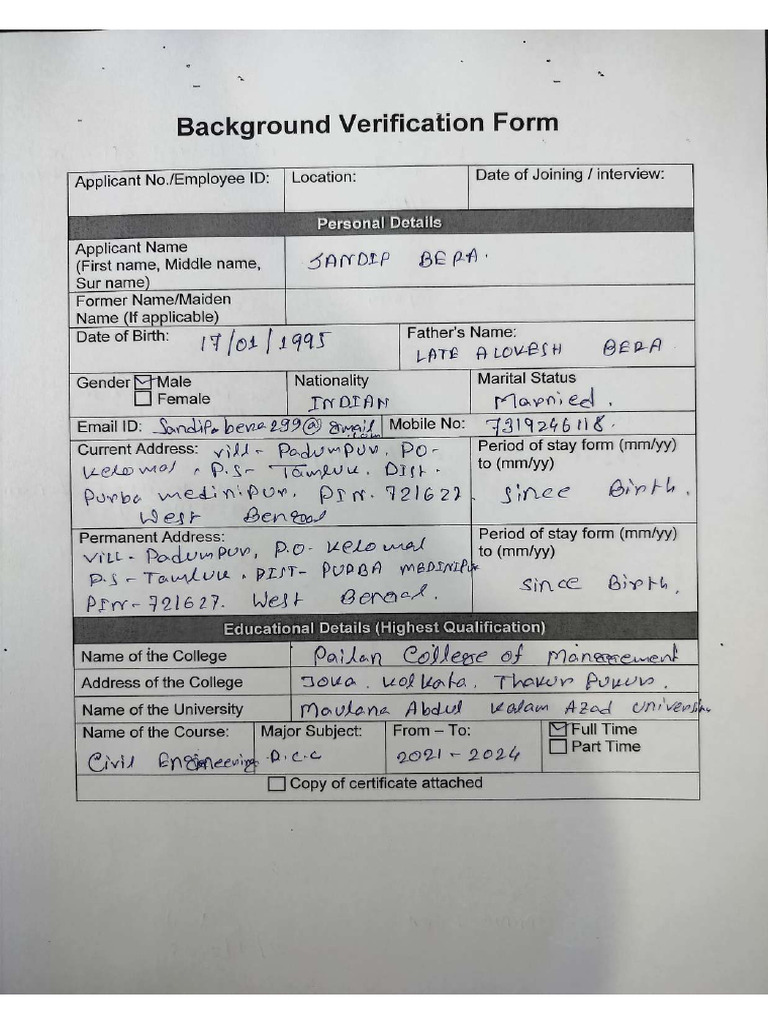 Background Verification Form
Applicant No./Employee ID: Location: Date of Joining / interview:
Personal Details
Applicant Name
(First name, Middle name,
Sur name)
SANDIP BERA.
Former Name/Maiden
Name (If applicable)
Date of Birth: 17/01/1995
Father's Name:
LATE ALOKESH BERA
Gender Male
Female
Nationality
INDIAN
Marital Status
Married.
Email ID: Sandip.bera299@gmail.com Mobile No: 7319246118.
Current Address: vill- Padumpur, PO-
Kelomal, P.S- Tamluk, Dist-
Purba medinipur, PIN- 721627,
West Bengal
Period of stay form (mm/yy)
to (mm/yy)
Since Birth.
Permanent Address:
Vill- Padumpur, P.O- Kelomal
P.S- Tamluk, DIST- PURBA MEDINIPUR
PIN- 721627. West Bengal.
Period of stay form (mm/yy)
to (mm/yy)
Since Birth.
Educational Details (Highest Qualification)
Name of the College Pailan College of Management
Address of the College Joka. Kolkata. Thakur Pukur.
Name of the University Maulana Abdul Kalam Azad University
Name of the Course:
Civil Engineering
Major Subject:
D.C.C
From – To:
2021 - 2024
Full Time
Part Time
Copy of certificate attached